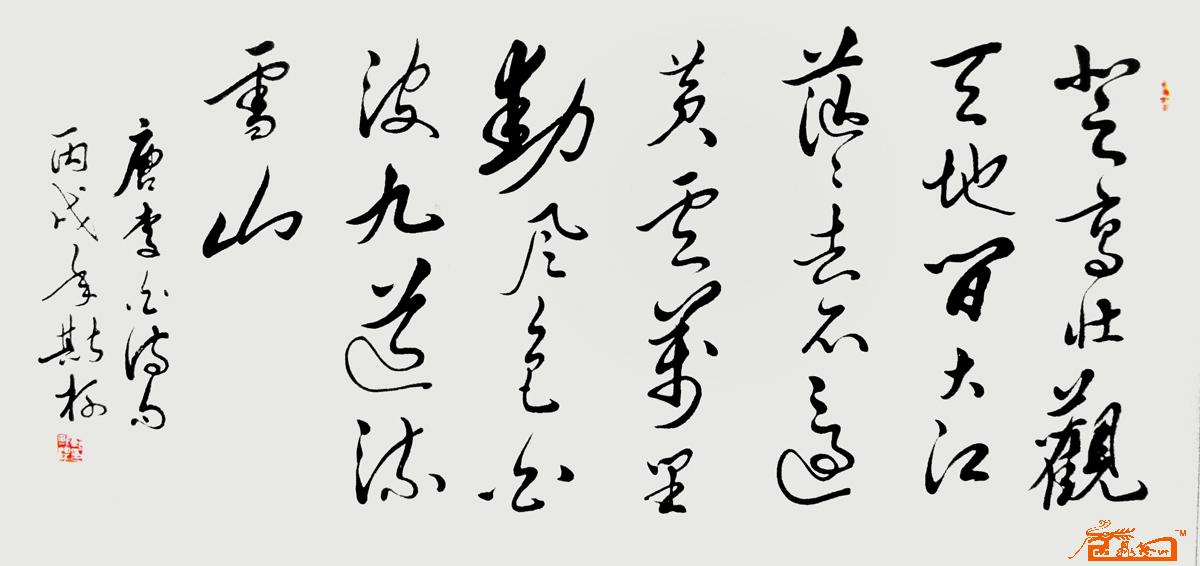 登高壮觀
天地間大江
茫々去不還
黄雲萬里
動風色白
波九道流
雪山
唐李白詩句
丙戌年斯
TM